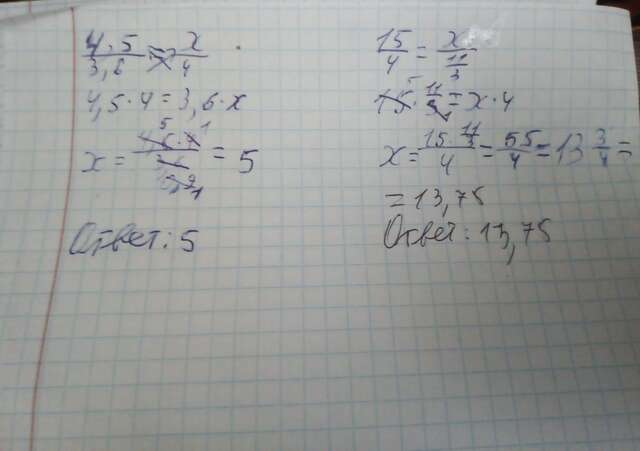 4,5/3,6 = x/4
4,5·4=3,6·x
x = = 5
Ответ: 5
15/4 = x/(11/3)
15·11/3=x·4
x=(15·11/3)/4=55/4=13 3/4=
=13,75
Ответ: 13,75